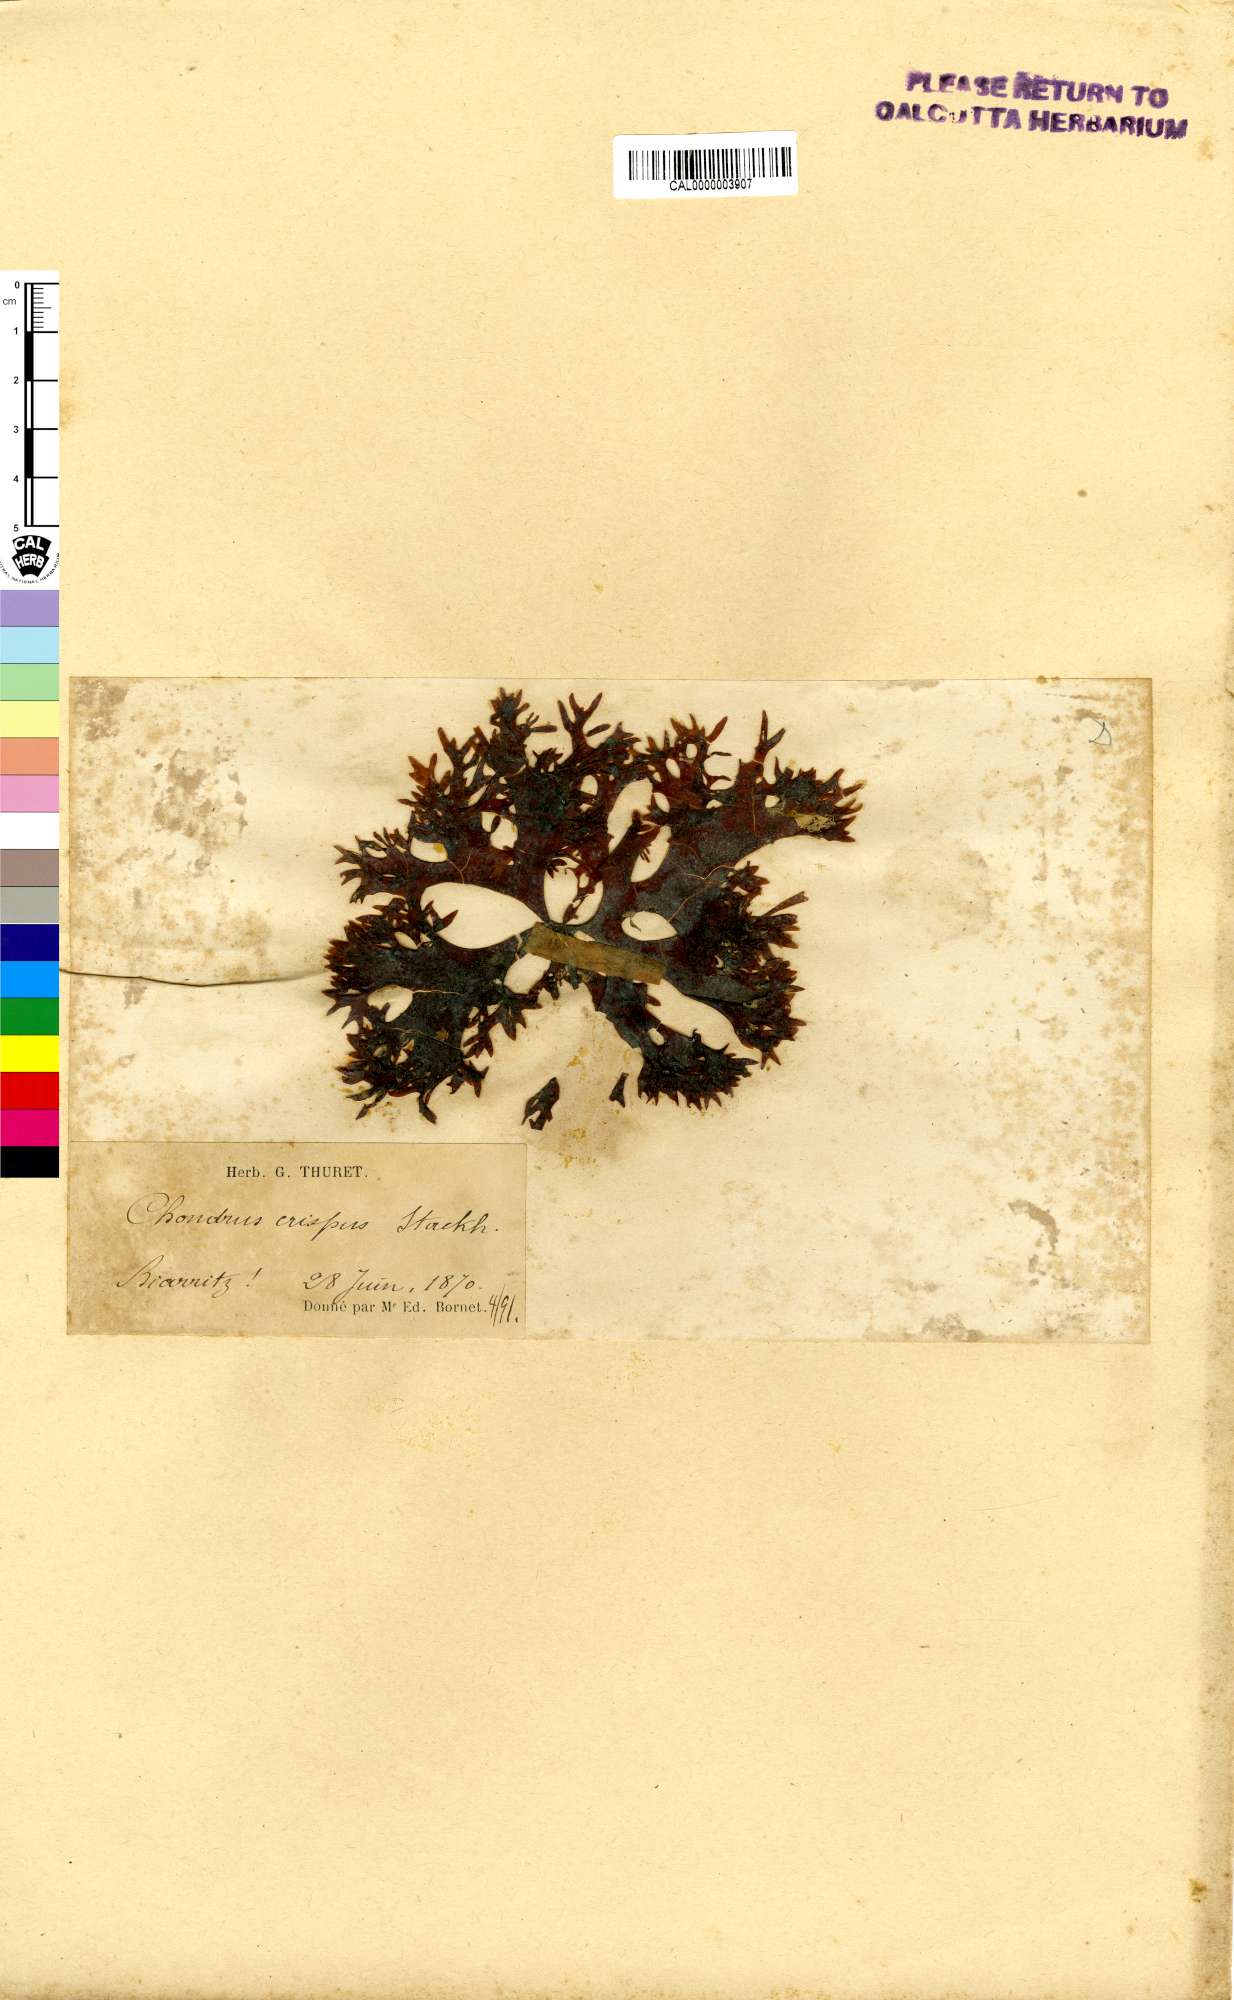 PLEASE RETURN TO
CALCUTTA HERBARIUM
CAL0000003907
0
cm
1
2
3
4
5
CAL
HERB
Herb. G. THURET.
Chondrus crispus Stackh.
Biarritz! 28 Juin, 1870.
Donné par Mr Ed. Bornet. 4/91.